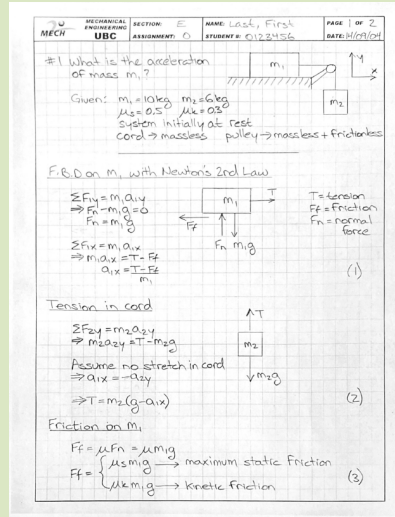 MECH
MECHANICAL ENGINEERING
UBC
SECTION: E
ASSIGNMENT: 0
NAME: Last, First
STUDENT #: 0123456
PAGE 1 OF 2
DATE: 14/09/04
#1 What is the acceleration
of mass m₁?
m₁
y
x
m₂
Given: m₁ = 10kg m₂ = 6kg
μs = 0.5 μk = 0.3
system initially at rest
cord → massless pulley → massless + frictionless
F.B.D on m₁ with Newton's 2nd Law
ΣF₁y = m₁a₁y
⇒ Fn - m₁g = 0
Fn = m₁g
ΣF₁x = m₁a₁x
⇒ m₁a₁x = T - Ff
a₁x = T - Ff
m₁
m₁
T
Ff
Fn m₁g
T = tension
Ff = friction
Fn = normal
force
(1)
Tension in cord
ΣF₂y = m₂a₂y
⇒ m₂a₂y = T - m₂g
Assume no stretch in cord
⇒ a₁x = -a₂y
⇒ T = m₂(g - a₁x)
T
m₂
m₂g
(2)
Friction on m₁
Ff = μFn = μm₁g
Ff = { μsm₁g → maximum static friction
μkm₁g → kinetic friction
(3)